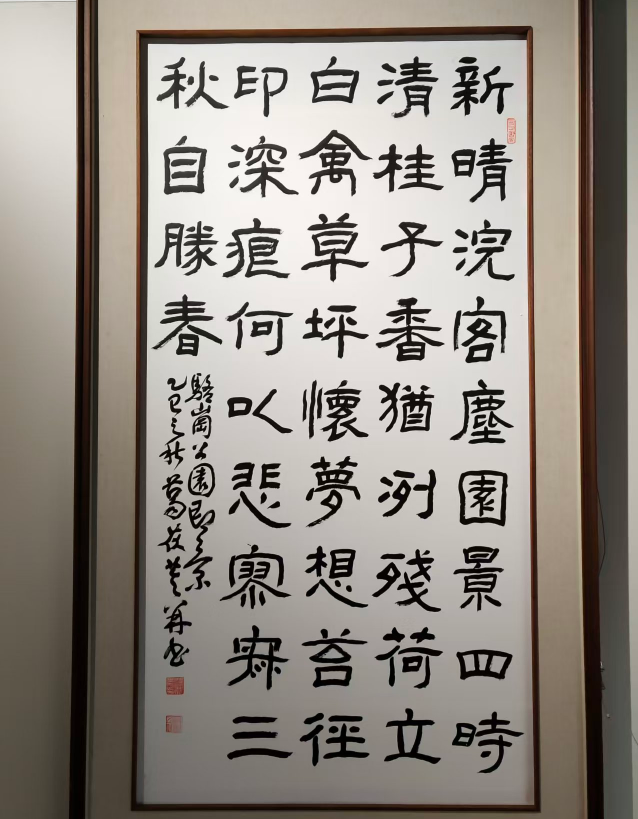 新晴浣客塵園景四時
清桂子香猶冽殘荷立
白禽草坪懷夢想苔徑
印深痕何以悲寥寂三
秋自勝春
駱崗公園即景
乙巳之秋葛并書